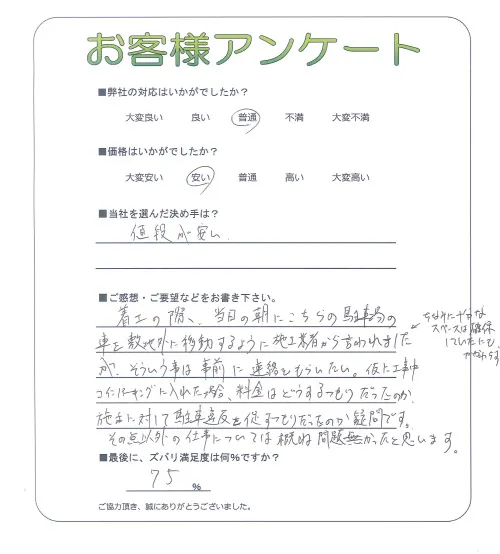 お客様アンケート
■弊社の対応はいかがでしたか？
大変良い 良い 普通 不満 大変不満
■価格はいかがでしたか？
大変安い 安い 普通 高い 大変高い
■当社を選んだ決め手は？
値段が安い
■ご感想・ご要望などをお書き下さい。
着工の際、当日の朝にこちらの駐車場の
車を敷地外に移動するように施工業者から言われました
が、そういう事は事前に連絡をもらいたい。仮に工事中
コインパーキングに入れた場合、料金はどうするつもりだったのか
施主に対して駐車違反を促すつもりだったのか疑問です。
その点以外の仕事については概ね問題無かったと思います。
ちなみに十分な
スペースは確保
していたにも
かかわらず
■最後に、ズバリ満足度は何％ですか？
75 %
ご協力頂き、誠にありがとうございました。